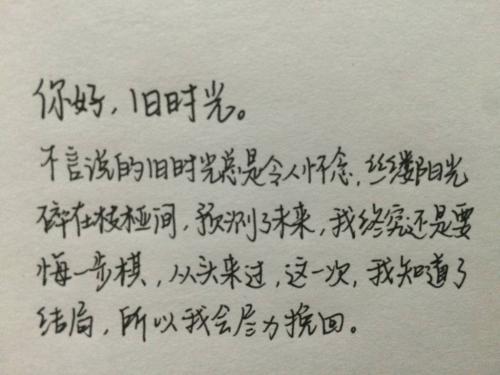 你好，旧时光。
不言说的旧时光总是令人怀念，丝缕阳光
碎在枝桠间，预测了未来，我终究还是要
悔一步棋，从头来过，这一次，我知道了
结局，所以我会尽力挽回。